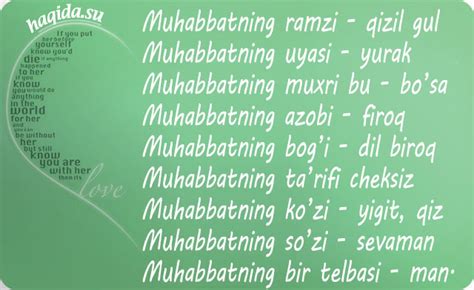 haqida.su
If you put
her before
yourself
know you'd
die if anything
happened
to her
if you
know
you would do
anything
in the
world
for her
and
you can
be without
her
but still
know
you are
with her
then its
love
Muhabbatning ramzi - qizil gul
Muhabbatning uyasi - yurak
Muhabbatning muxri bu - bo'sa
Muhabbatning azobi - firoq
Muhabbatning bog'i - dil biroq
Muhabbatning ta'rifi cheksiz
Muhabbatning ko'zi - yigit, qiz
Muhabbatning so'zi - sevaman
Muhabbatning bir telbasi - man.